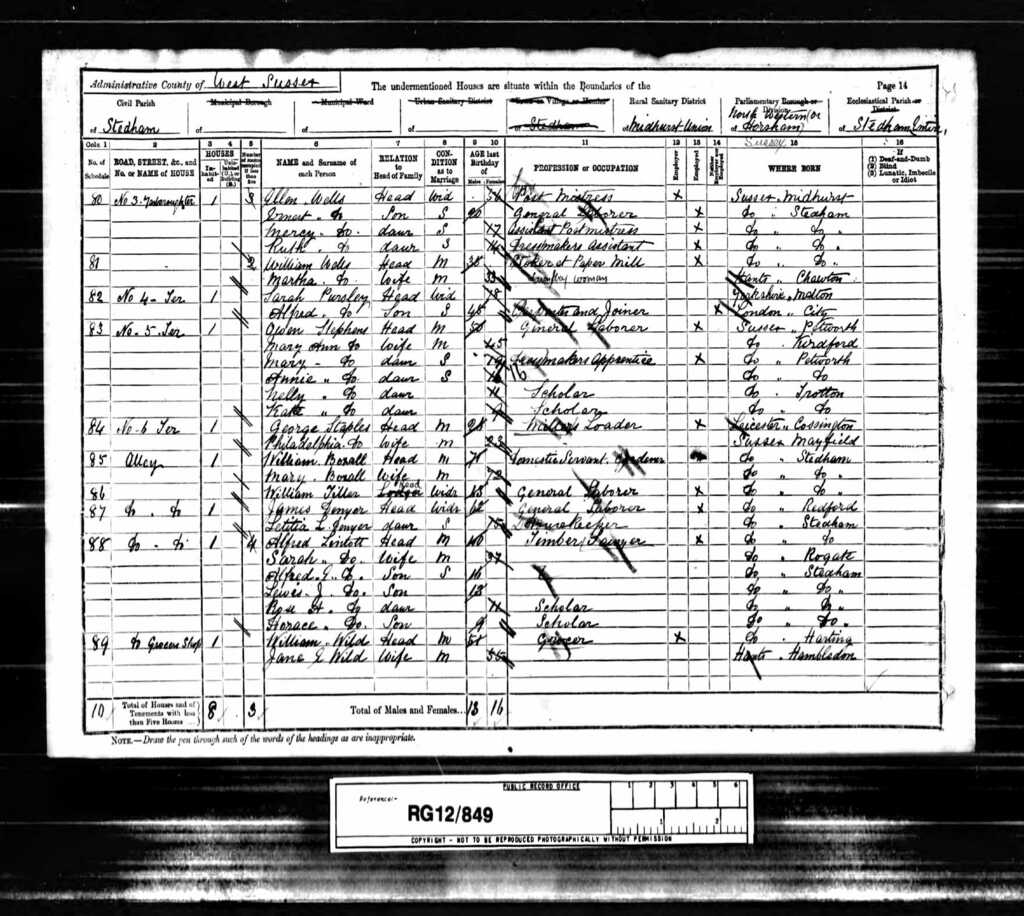 Administrative County of West Sussex
The undermentioned Houses are situate within the Boundaries of the
Page 14
Civil Parish of Stedham
Municipal Borough of
Municipal Ward of
Urban Sanitary District of
Town or Village or Hamlet of Stedham
Rural Sanitary District of Midhurst Union
Parliamentary Borough or Division of North Western (or Horsham) Sussex
Ecclesiastical Parish or District of Stedham
Cols 1 2 3 4 5 6 7 8 9 10 11 12 13 14 15 16
No. of Schedule
ROAD, STREET, &c., and No. or NAME of HOUSE
HOUSES
Inhabited
Uninhabited (U.), or Building (B.)
Number of rooms occupied if less than five
NAME and Surname of each Person
RELATION to Head of Family
CONDITION as to Marriage
AGE last Birthday of
Males Females
PROFESSION or OCCUPATION
Employer
Employed
Neither Employer nor Employed
WHERE BORN
If
(1) Deaf-and-Dumb
(2) Blind
(3) Lunatic, Imbecile or Idiot
80 No 3 1 3 Ellen Wells Head Wid 56 Post Mistress X Sussex Midhurst
Ernest Do Son S 20 General Laborer X Do " Stedham
Mercy Do daur S 17 Assistant Postmistress X Do " Do
Ruth " Do daur S 14 Dressmakers Assistant X Do " Do
81 2 William Wells Head M 38 Stoker at Paper Mill X Do " Do
Martha " Do Wife M 33 Laundry woman Hants " Chawton
82 No 4 Ter 1 Sarah Pursley Head Wid 78 Yorkshire " Malton
Alfred " Do Son S 45 Carpenter and Joiner X London " City
83 No. 5 Ter 1 Owen Stephens Head M 50 General Laborer X Sussex " Petworth
Mary Ann Do Wife M 45 Do " Kirdford
Mary - Do daur S 19 Dressmakers Apprentice X Do " Petworth
Annie " Do daur S 16 16 Do " Do
Nelly " Do daur 11 Scholar Do " Trotton
Kate " Do daur 9 Scholar Do " Do
84 No. 6 Ter 1 George Staples Head M 28 Millers Loader X Leicester " Cossington
Philadelphia Do Wife M 23 Sussex Mayfield
85 Alley 1 William Boxall Head M 78 Domestic Servant Gardener Do " Stedham
Mary Boxall Wife M 73 Do " Do
86 William Tiller Lodger Head Widr General Laborer X Do " Do
87 Do Do 1 James Denyer Head Widr 62 General Laborer X Do " Redford
Letitia L. Denyer daur S Housekeeper Do " Stedham
88 Do Do 1 4 Alfred Lintott Head M 40 Timber Sawyer X Do " Do
Sarah " Do Wife M 37 Do " Rogate
Alfred G. Do Son S 16 Do " Stedham
Lewis J. Do Son 13 Do " Do
Rose H. Do daur 11 Scholar Do " Do
Horace " Do Son 9 Scholar Do " Do
89 Do Grocers Shop 1 William Wild Head M 58 Grocer X Do " Harting
Jane Wild Wife M 56 Hants " Hambledon
10 Total of Houses and of Tenements with less than Five Rooms 8 3 Total of Males and Females... 13 16
NOTE.—Draw the pen through such of the words of the headings as are inappropriate.
PUBLIC RECORD OFFICE
Reference:-
RG12/849
1 2 3 4 5 6
1 2
COPYRIGHT - NOT TO BE REPRODUCED PHOTOGRAPHICALLY WITHOUT PERMISSION